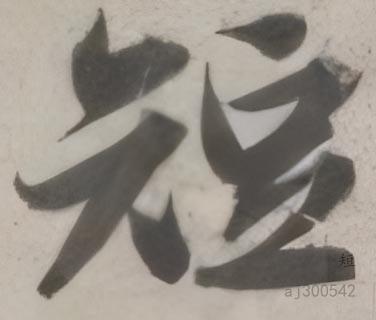 短
短
aj300542